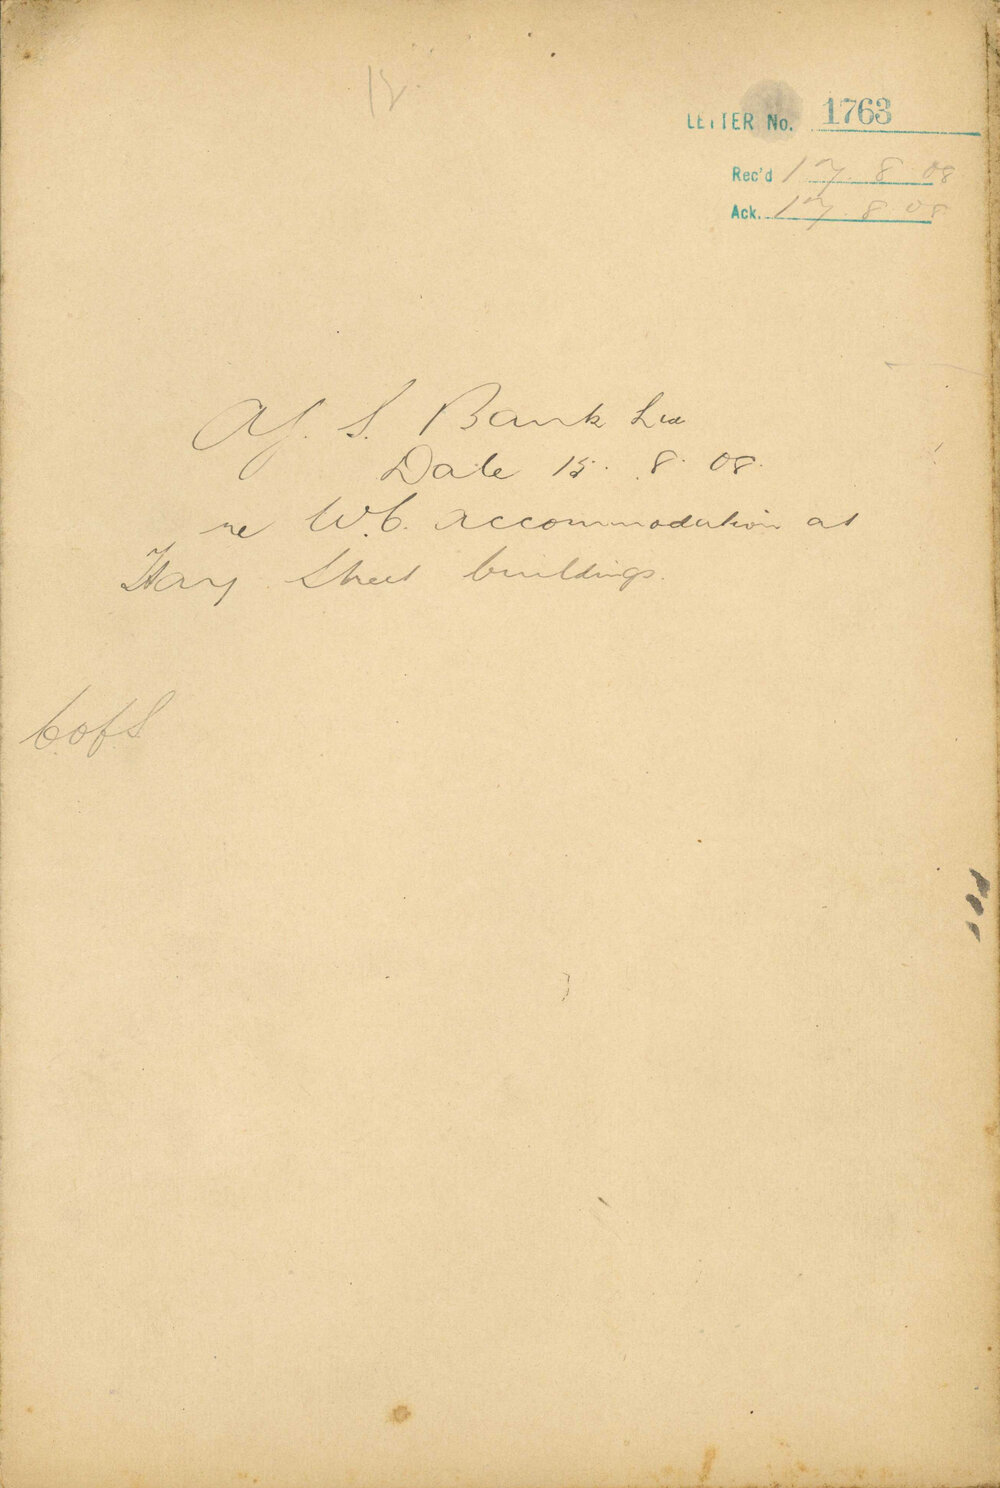 12
LETTER No. 1763
Rec'd 17.8.08
Ack. 17.8.08
A.J.S. Bank Ltd
Date 15.8.08.
re W.C. accommodation at
Hay Street buildings.
C of S